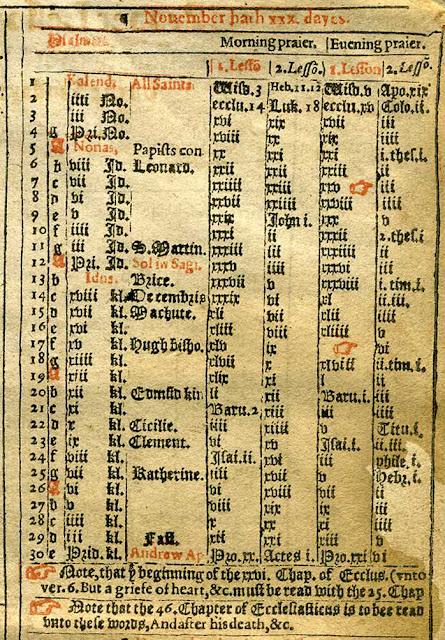 ¶ Nouember hath xxx. dayes.
Psalmes Morning praier. Euening praier.
1.Lessõ 2.Lessõ. 1.Lesson 2.Lessõ.
1 Kalend. All Saints Wisd. 3 Heb.11.12 Wisd. v Apo.xix
2 iiii No. ecclu.14 Luk.18 ecclu.xv Colo.ii.
3 iii No. xvi xix xvii iii
4 g Pri. No. xviii xx xix iiii
5 A Nonas, Papists con xx xxi xxi i.thes.i
6 b viii Id. Leonard. xxii xxii xxiii ii
7 c vii Id. xxiiii xxiii xxv iii
8 d vi Id. xxvii xxiiii xxviii iiii
9 e v Id. xxix John i. xxx v
10 f iiii Id. xxxi ii xxxii 2.thes.i
11 g iii Id. S.Martin. xxxiii iii xxxiiii ii
12 A Pri. Id. Sol in Sagi. xxxv iiii iii
13 b Idus. Brice. v xxxviii i.tim.i
14 c xviii kl. Decembris xxxix vi xl ii.iii.
15 d xvii kl. Machute. xli vii xlii iiii
16 e xvi kl. xliii viii xliiii v
17 f xv kl. Hugh bisho. xlv ix vi
18 g xiiii kl. xlvii x xlviii ii.tim.i
19 A xiii kl. xlix xi l ii
20 b xii kl. Edmũd kin li xii Baru.i iii
21 c xi kl. Baru.2 xiii iii iiii
22 d x kl. Cicilie. iiii xiiii v Titu.i
23 e ix kl. Clement. vi xv Isai.i ii.iii.
24 f viii kl. Isai.ii. xvi iii phile.i
25 g vii kl. Katherine. iiii xvii v Hebr.i
26 A vi kl. vi xviii vii ii
27 b v kl. viii xix ix iii
28 c iiii kl. x xx xi iiii
29 d iii kl. Fast. xii xxi xiii v
30 e Prid. kl. Andrew Ap Pro.xx. Actes i. Pro.xxi vi
Note, that yͤ beginning of the xxvi. Chap. of Ecclus. (vnto
ver. 6. But a griefe of heart, &c. must be read with the 25. Chap
Note that the 46. Chapter of Ecclesiasticus is to bee read
vnto these words, And after his death, &c.